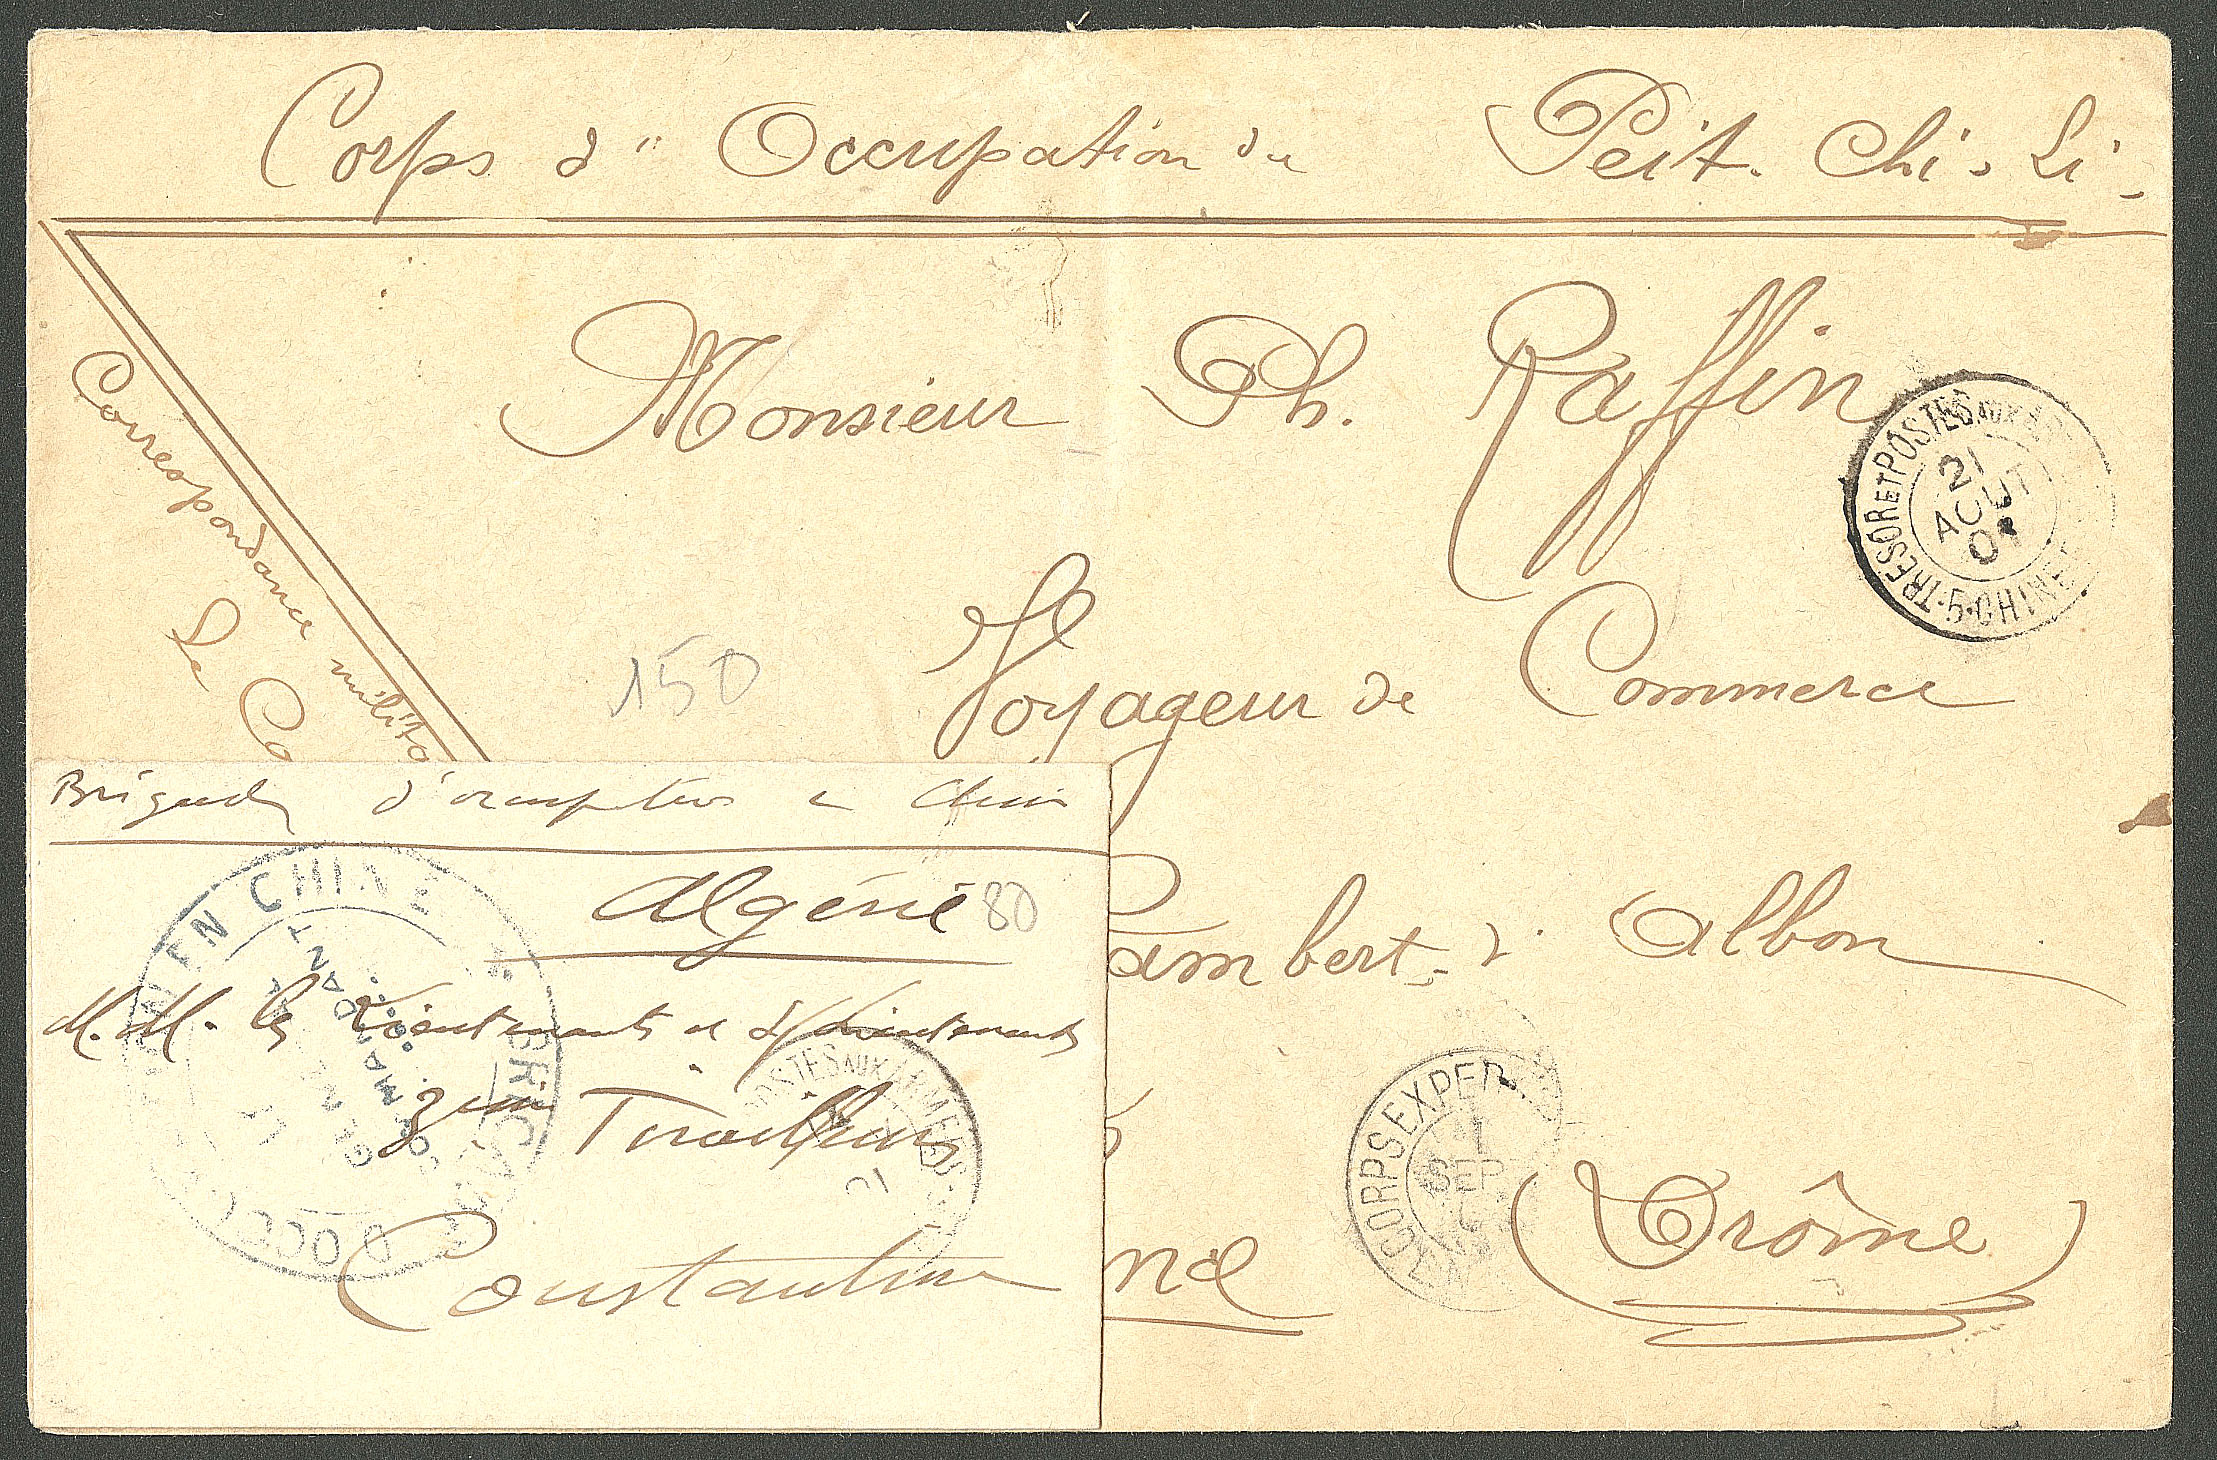 Corps d'' Occupation du Peit. Chi. Li.
Monsieur Ph. Raffin
TRESOR ET POSTES AUX AR
21
AOUT
01
5·CHINE
Correspondance milita
Le Co
150
Voyageur de Commerce
Brigade d'occupation en Chine
Algérie 80
M.M. les Lieutenants et S/Lieutenants
3eme Tirailleurs
Constantine
EN CHINE
BRIGADE
D'OCCU
GENERAL
COMMANDANT
POSTES AUX ARMEES
ambert. d' Albon
CORPS EXPED
1
SEPT
ne (Drôme)